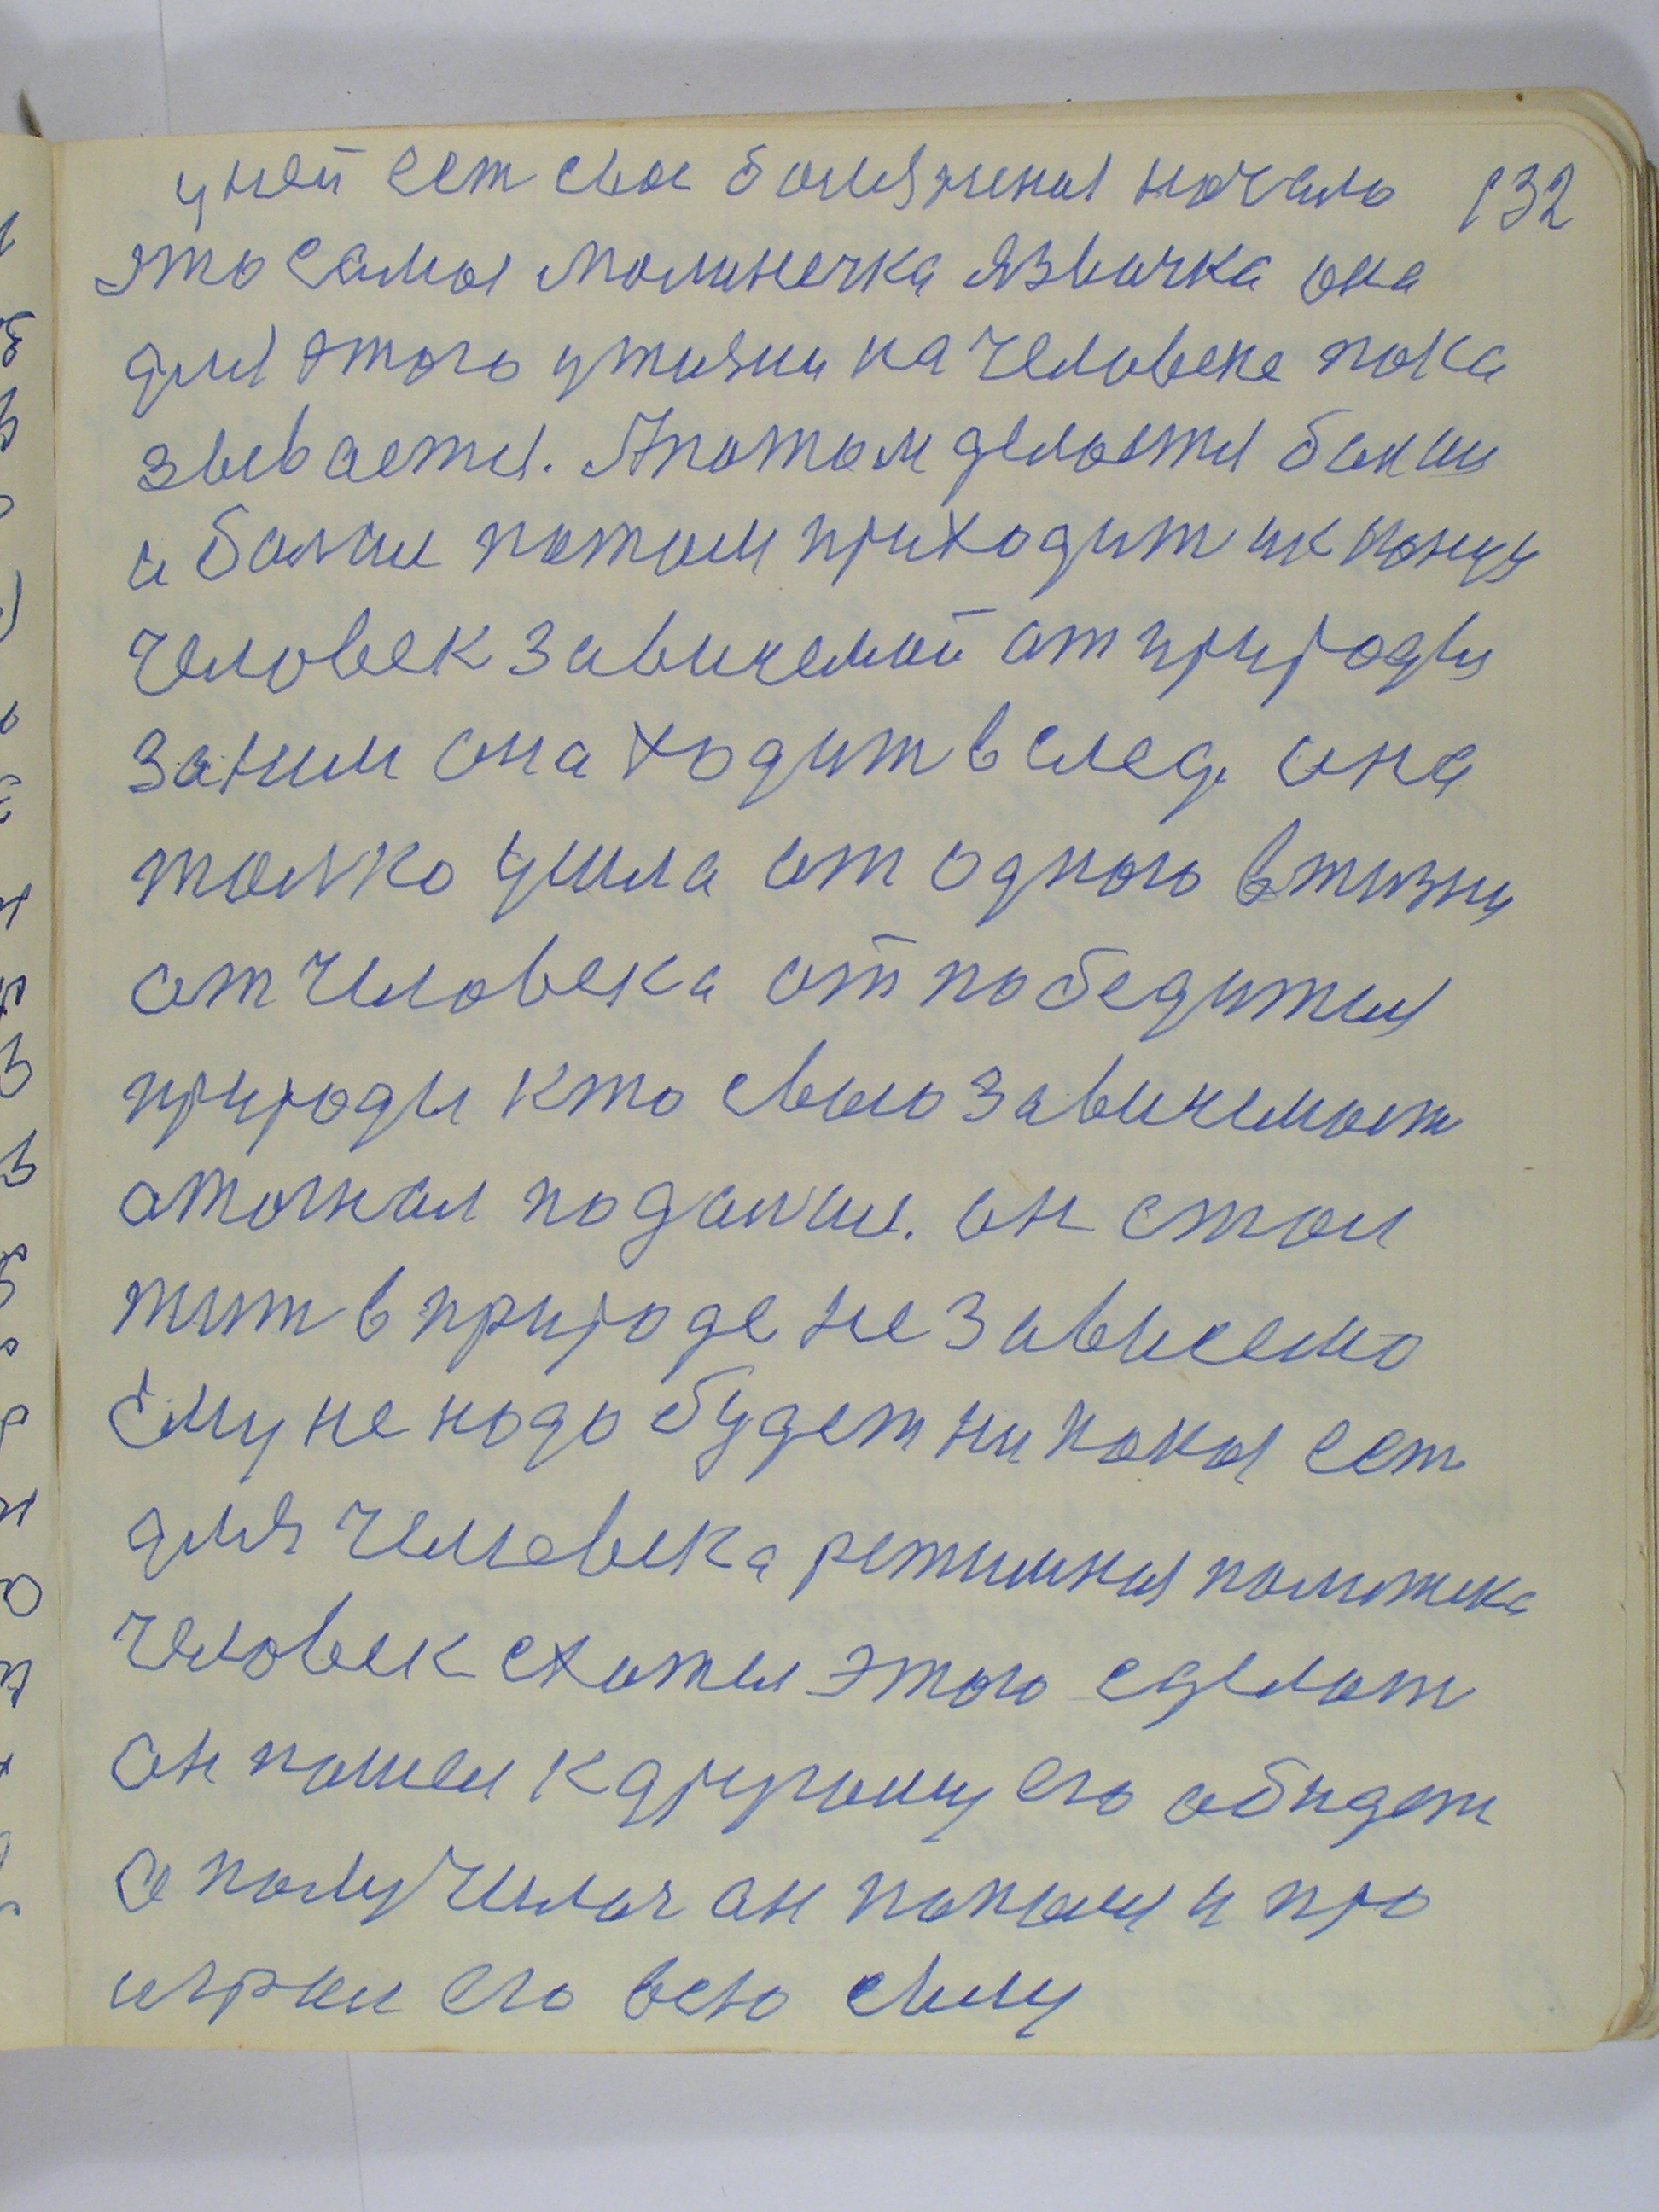 у ней ест своя болязненая начало 132
это самоя малинечка язвычка она
для этого у жизни на человеке пока
зывается. А потом делается болши
и болши потом приходит и к концу
человек зависемой от природы
за ним она ходит в след. она
толко ушла от одного в жизни
от человека от победителя
природы кто свою зависимост
отогнал подальши. он стал
жит в природе не зависемо
ему не надо будет ни какая ест
для человека режимная политика
человек схотел этого сделат
он пошел к другому его обидет
а получилос он попал и про
играл его всю силу